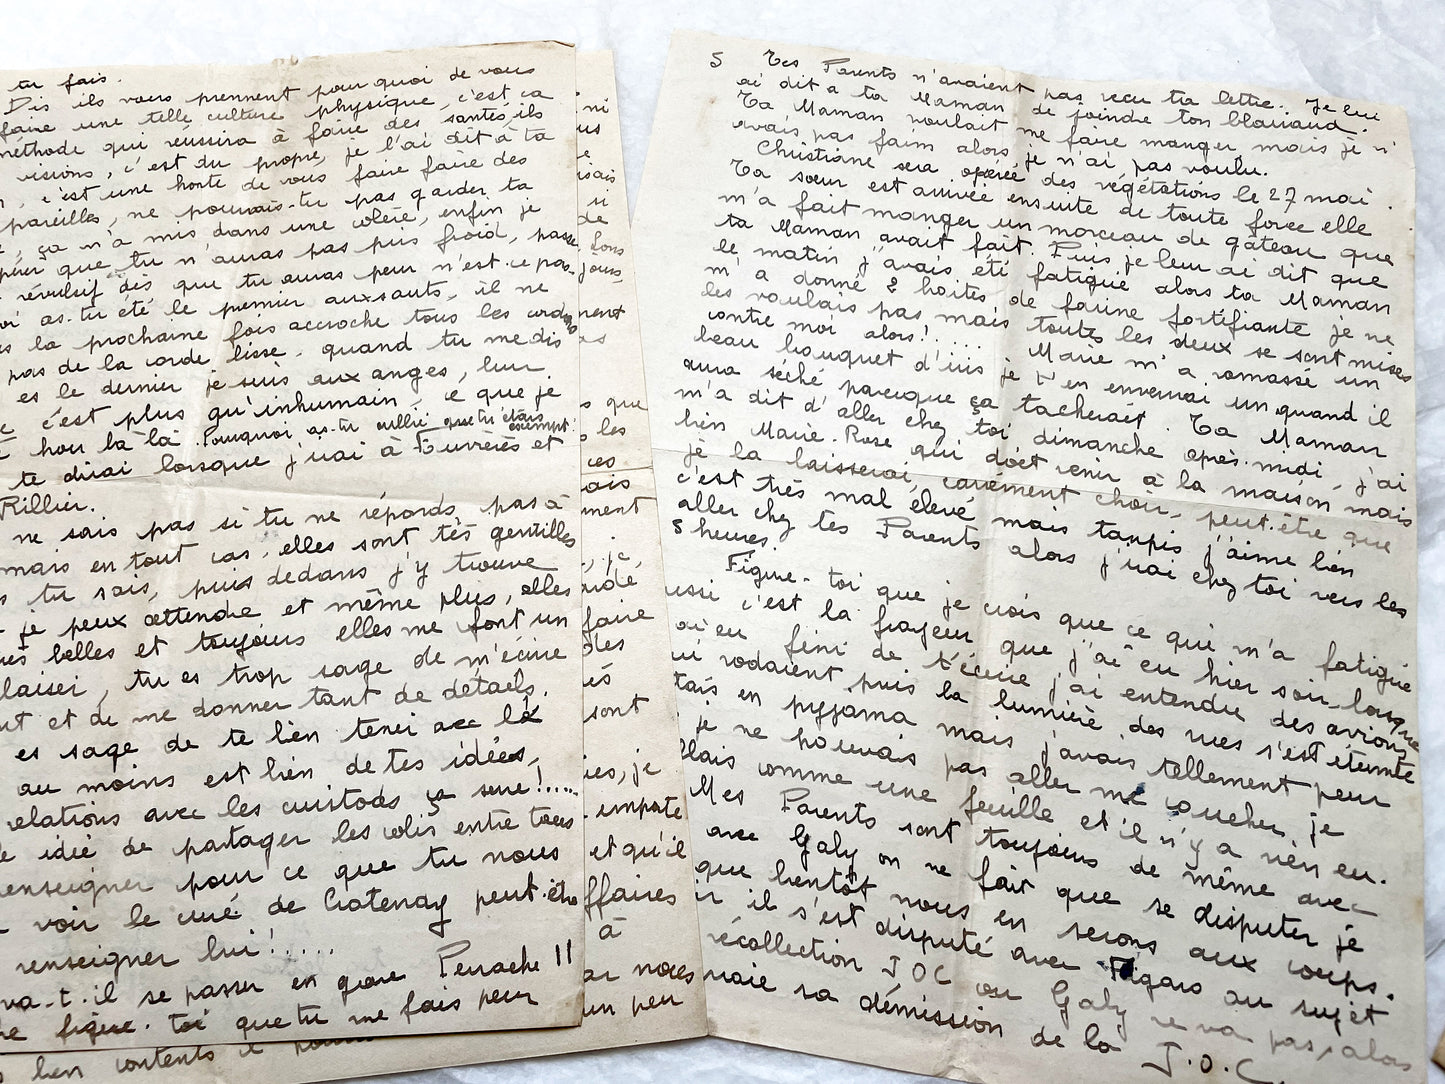 tu fais.
Dis ils vous prennent pour quoi de vous
faire une telle culture physique, c'est ca
méthode qui réussira à faire des santés, ils
visions, c'est du propre, je l'ai dit à ta
, c'est une honte de vous faire faire des
pareilles, ne pouvais-tu pas garder ta
, ça m'a mis dans une colère, enfin je
que tu n'auras pas pris froid, passe
révulsif dès que tu auras peur n'est-ce pas.
as-tu été le premier aux sauts, il ne
la prochaine fois accroche tous les cordons
pas de la corde lisse. quand tu me dis
es le dernier je suis aux anges,
c'est plus qu'inhumain, ce que je
hou la la. Pourquoi as-tu oublié que tu étais exempt
te dirai lorsque j'irai à Ouvrerès et
Rillier.
ne sais pas si tu ne réponds pas à
mais en tout cas, elles sont très gentilles
tu sais, puis dedans j'y trouve
je peux attendre et même plus, elles
belles et toujours elles me font un
plaisir, tu es trop sage de m'écrire
et de me donner tant de détails.
es sage de te bien tenir avec la
au moins est bien de tes idées,
relations avec les curitods ça serre!.....
idée de partager les colis entre tous
renseigner pour ce que tu nous
voir le curé de Chatenay peut-être
renseigner lui!.....
va-t-il se passer en gare Perrache !!
figure-toi que tu me fais peur
bien contents
ni
si
de
fons
jours
ment
as
que
les
ces
ais
ment
je,
faire
des
és
sont
je
emporte
et qu'il
affaires
à
nous
un peu
5 Tes Parents n'avaient pas reçu ta lettre. Je lui
ai dit a ta Maman de joindre ton blaireau.
Ta Maman voulait me faire manger mais je n'
avais pas faim alors je n'ai pas voulu.
Christiane sera opérée des végétations le 27 mai.
Ta sœur est arrivée ensuite de toute force elle
m'a fait manger un morceau de gâteau que
ta Maman avait fait. Puis je leur ai dit que
le matin j'avais été fatiguée alors ta Maman
m'a donné 2 boites de farine fortifiante je ne
les voulais pas mais toutes les deux se sont mises
contre moi alors!..... Marie m'a ramassé un
beau bouquet d'iris je t'en enverrai un quand il
aura séché parceque ça tacherait. Ta Maman
m'a dit d'aller chez toi dimanche après-midi, j'ai
bien Marie-Rose qui doit venir à la maison mais
je la laisserai, carrément choir, peut-être que
c'est très mal élevé mais tanpis j'aime bien
aller chez tes Parents alors j'irai chez toi vers les
5 heures.
Figure-toi que je crois que ce qui m'a fatigué
aussi c'est la frayeur que j'ai eu hier soir lorsque
j'ai eu fini de t'écrire j'ai entendu des avions
qui rodaient puis la lumière des rues s'est éteinte
étais en pyjama mais j'avais tellement peur
je ne pouvais pas aller me coucher, je
allais comme une feuille et il n'y a rien eu.
Mes Parents sont toujours de même avec
avec Galy on ne fait que se disputer je
que bientôt nous en serons aux coups.
il s'est disputé avec Figaro au sujet
récollection JOC ou Galy ne va pas, alors
sa démission de la J.O.C.